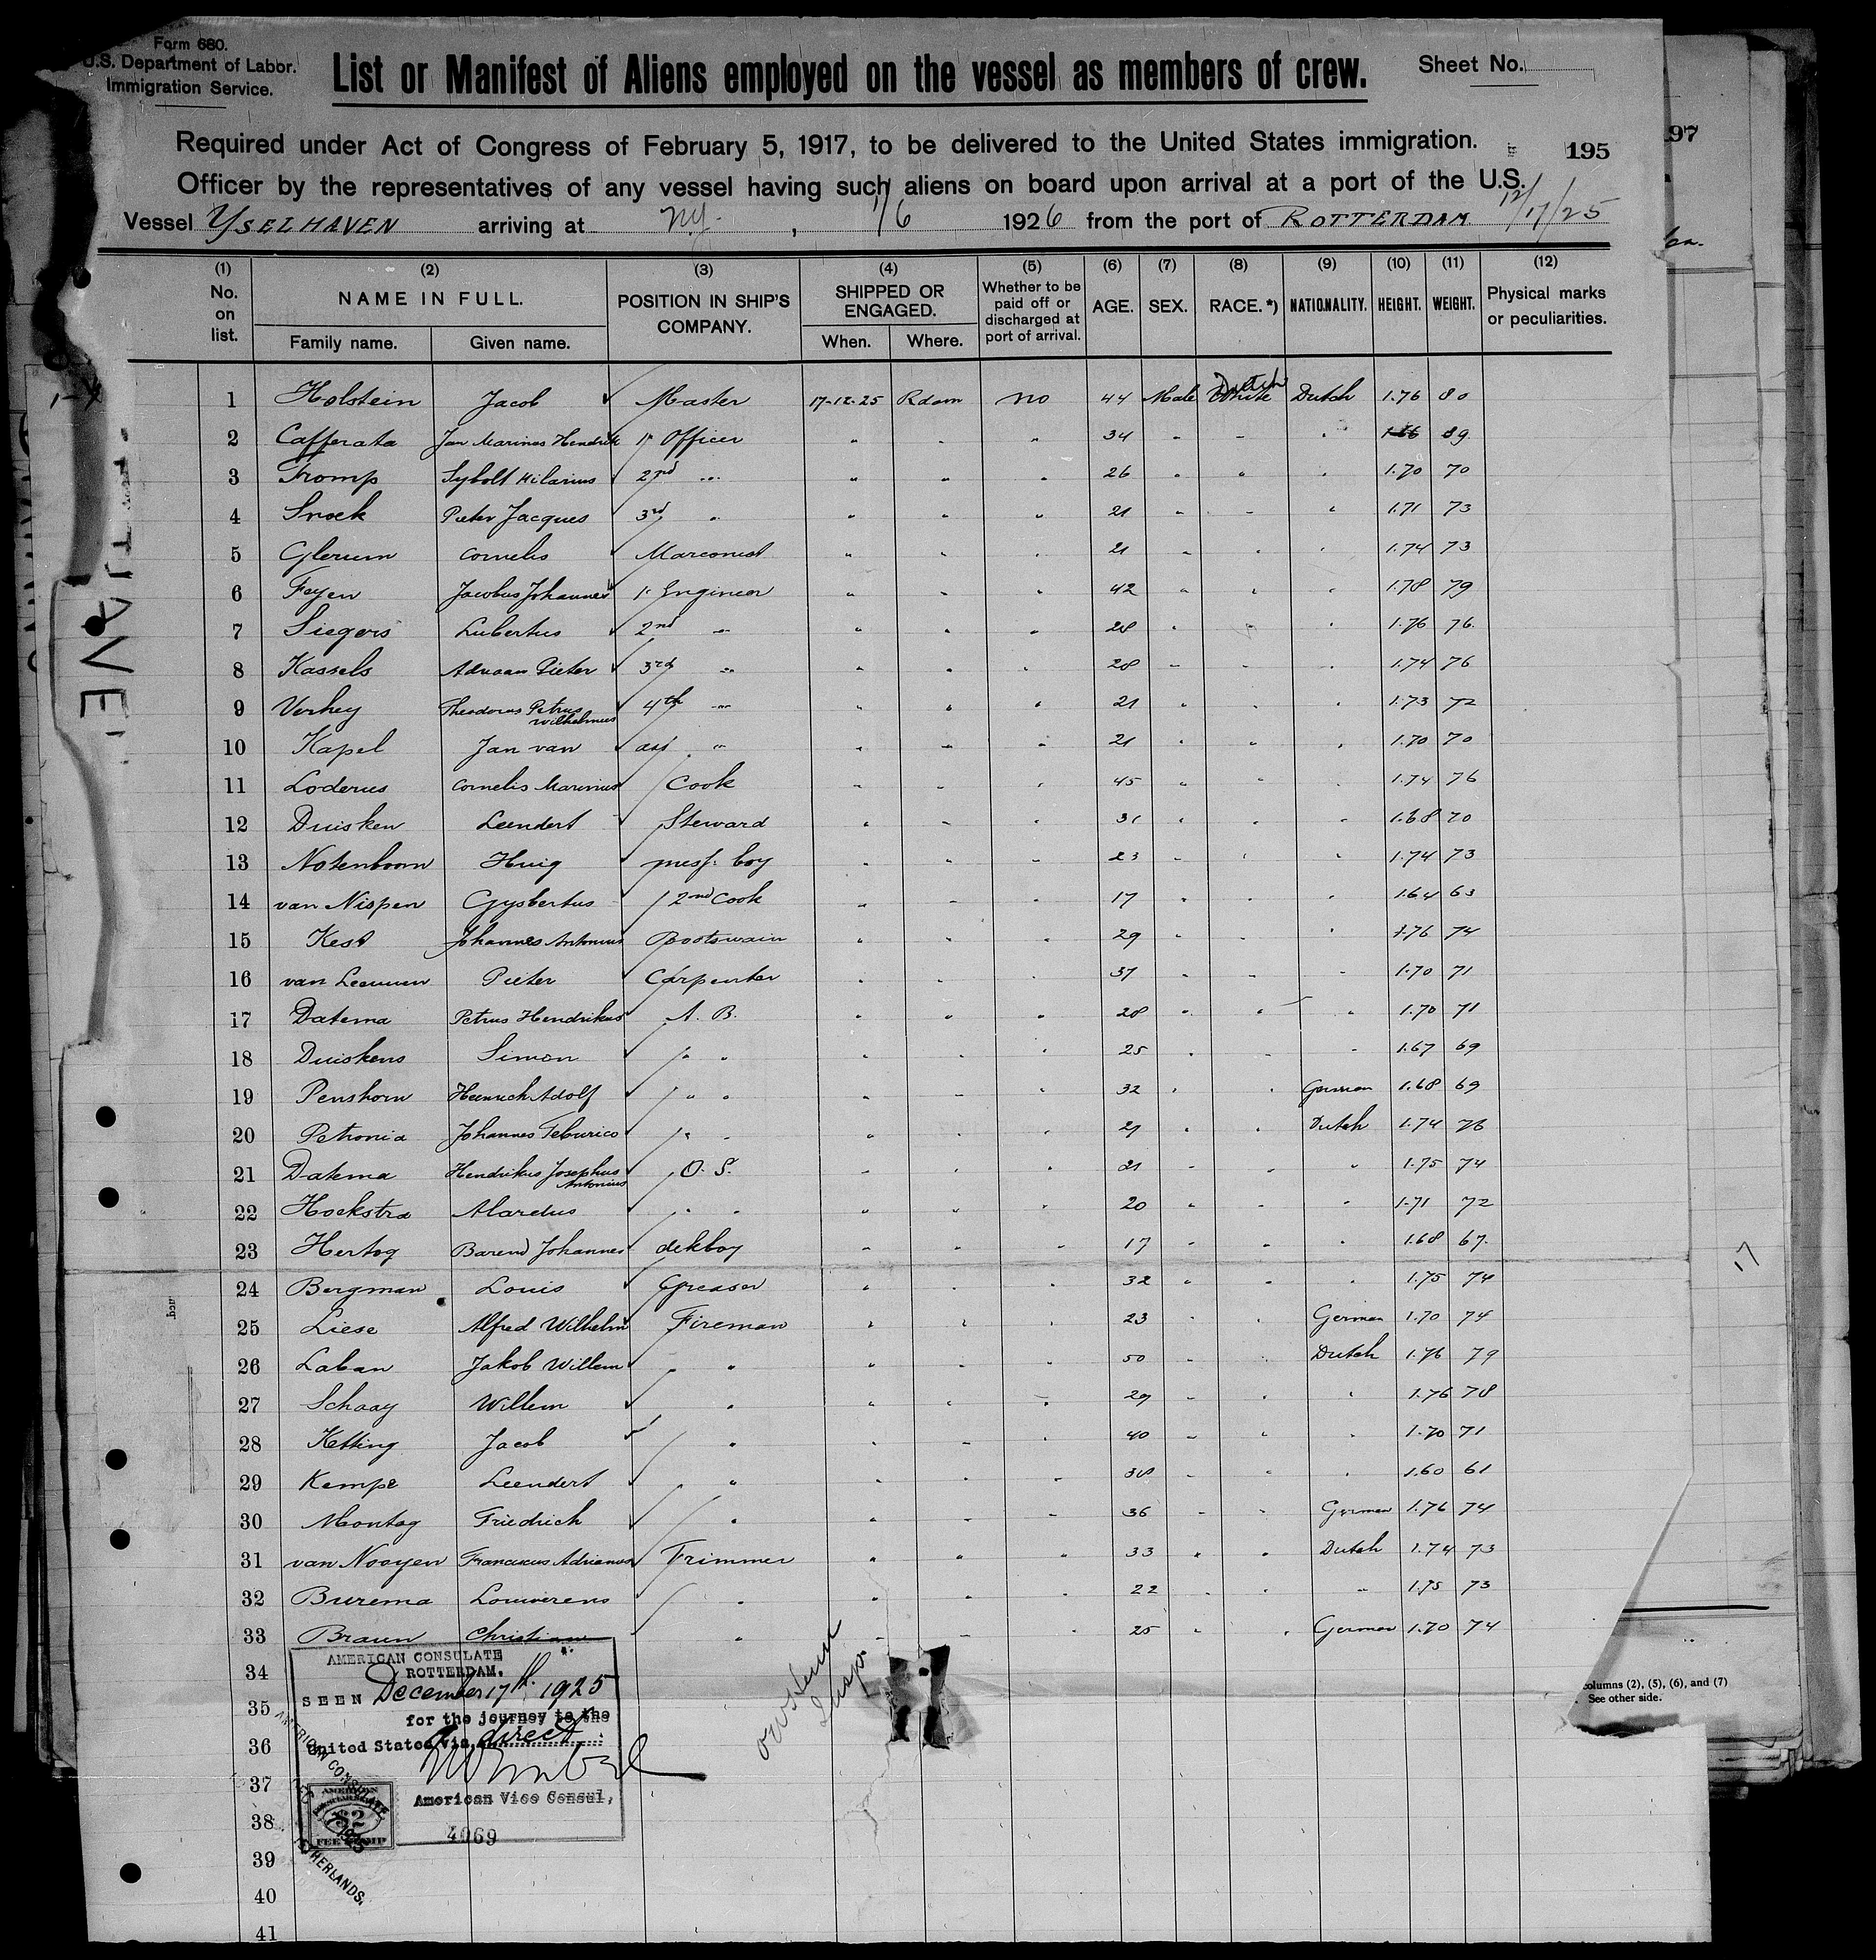 Form 680.
U.S. Department of Labor.
Immigration Service.
List or Manifest of Aliens employed on the vessel as members of crew.
Sheet No.
Required under Act of Congress of February 5, 1917, to be delivered to the United States immigration.
195
97
Officer by the representatives of any vessel having such aliens on board upon arrival at a port of the U.S.
Vessel YSELHAVEN arriving at N.Y. , 1/6 1926 from the port of ROTTERDAM 12/17/25
(1) No. on list. (2) NAME IN FULL. Family name. Given name. (3) POSITION IN SHIP'S COMPANY. (4) SHIPPED OR ENGAGED. When. Where. (5) Whether to be paid off or discharged at port of arrival. (6) AGE. (7) SEX. (8) RACE.*) (9) NATIONALITY. (10) HEIGHT. (11) WEIGHT. (12) Physical marks or peculiarities.
1 Holstein Jacob Master 17-12-25 Rdam no 44 Male White Dutch Dutch 1.76 80
2 Cafferata Jan Marinus Hendrik 1e Officer " " " 34 " " " 1.86 89.
3 Tromp Sybolt Hilarius 2nd " " " " 26 " " " 1.70 70
4 Snoek Pieter Jacques 3rd " " " " 21 " " " 1.71 73
5 Glerum Cornelis Marconist " " " 21 " " " 1.74 73
6 Feyen Jacobus Johannes 1e Engineer " " " 42 " " " 1.78 79
7 Siegers Lubertus 2nd " " " " 28 " " " 1.76 76.
8 Kassels Adriaan Pieter 3rd " " " " 28 " " " 1.74 76
9 Verhey Theodorus Petrus Wilhelmus 4th " " " " 21 " " " 1.73 72
10 Kapel Jan van ass " " " " 21 " " " 1.70 70
11 Loderus Cornelis Marinus Cook " " " 45 " " " 1.74 76
12 Duisken Leendert Steward " " " 31 " " " 1.68 70
13 Notenboom Huig mess boy " " " 23 " " " 1.74 73
14 van Nispen Gysbertus 2nd Cook " " " 17 " " " 1.64 63
15 Kest Johannes Antonius Bootswain " " " 29 " " " 1.76 74
16 van Leeuwen Pieter Carpenter " " " 37 " " " 1.70 71
17 Datema Petrus Hendrikus A. B. " " " 28 " " " 1.70 71
18 Duiskens Simon " " " " " 25 " " " 1.67 69
19 Penshorn Heinrich Adolf " " " " " 32 " " German 1.68 69
20 Petronia Johannes " " " " " " " Dutch 1.74 76
21 Datema Hendrikus Josephus Antonius O. S. " " " 21 " " " 1.75 74
22 Hoekstra Alardus " " " " " 20 " " " 1.71 72
23 Hertog Barend Johannes dekboy " " " 17 " " " 1.68 67.
24 Bergman Louis Greaser " " " 32 " " " 1.75 74
25 Liese Alfred Wilhelm Fireman " " " 23 " " German 1.70 74
26 Laban Jakob Willem " " " " " 50 " " Dutch 1.76 79
27 Schaay Willem " " " " 29 " " " 1.76 78
28 Ketting Jacob " " " " 40 " " " 1.70 71
29 Kempe Leendert " " " " " 38 " " " 1.60 61
30 Montag Friedrich " " " " 36 " " German 1.76 74
31 van Nooyen Franciscus Adrianus Trimmer " " " 33 " " Dutch 1.74 73
32 Burema Louwerens " " " " 22 " " " 1.75 73
33 Braun Christian " " " " 25 " " German 1.70 74
34
35
36
37
38
39
40
41
AMERICAN CONSULATE
ROTTERDAM.
SEEN December 17th. 1925
for the journey to the
United States via, direct
American Vice Consul,
4069
AMERICAN CONSULATE
NETHERLANDS.
AMERICAN
$2
FEE STAMP
Insp.
columns (2), (5), (6), and (7)
See other side.
17